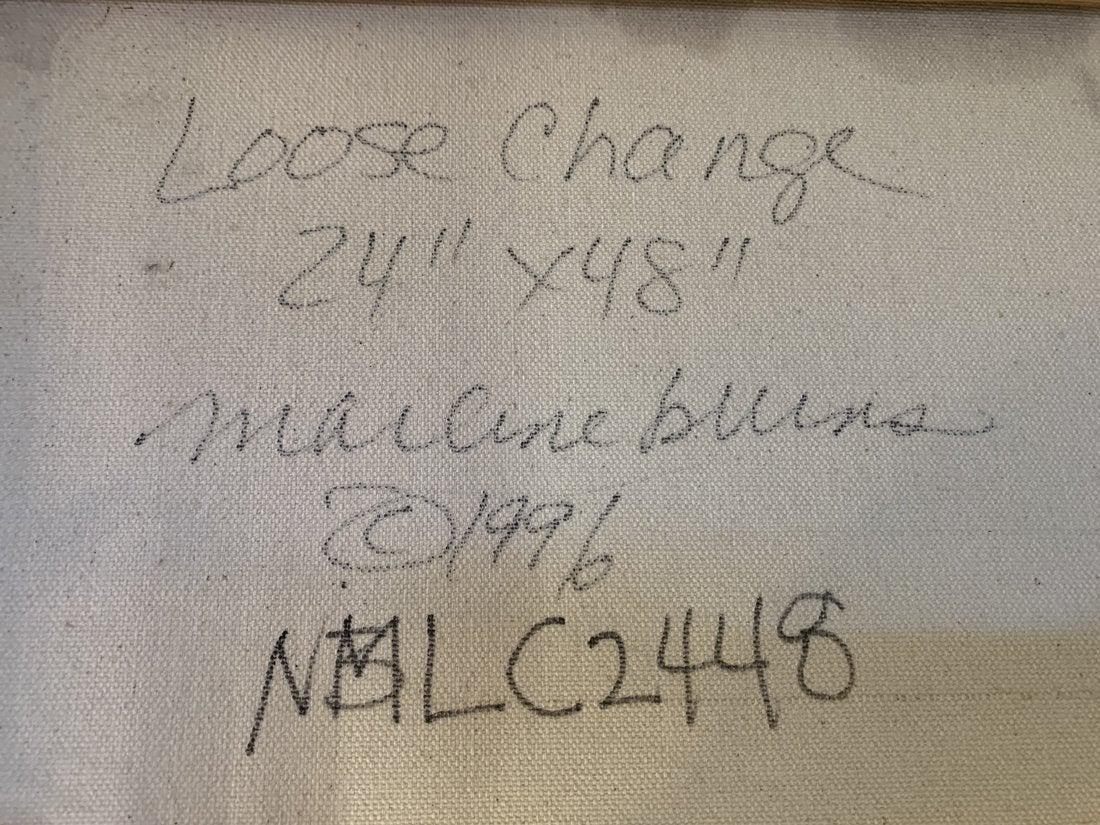 Loose Change
24" x 48"
marlene burns
© 1996
NMLC2448